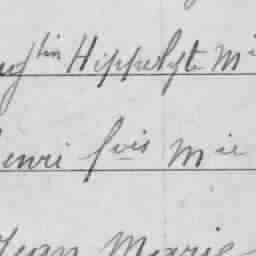 ug^tin Hippolyte M^i
enri f^ois M^ie
Jean Marie